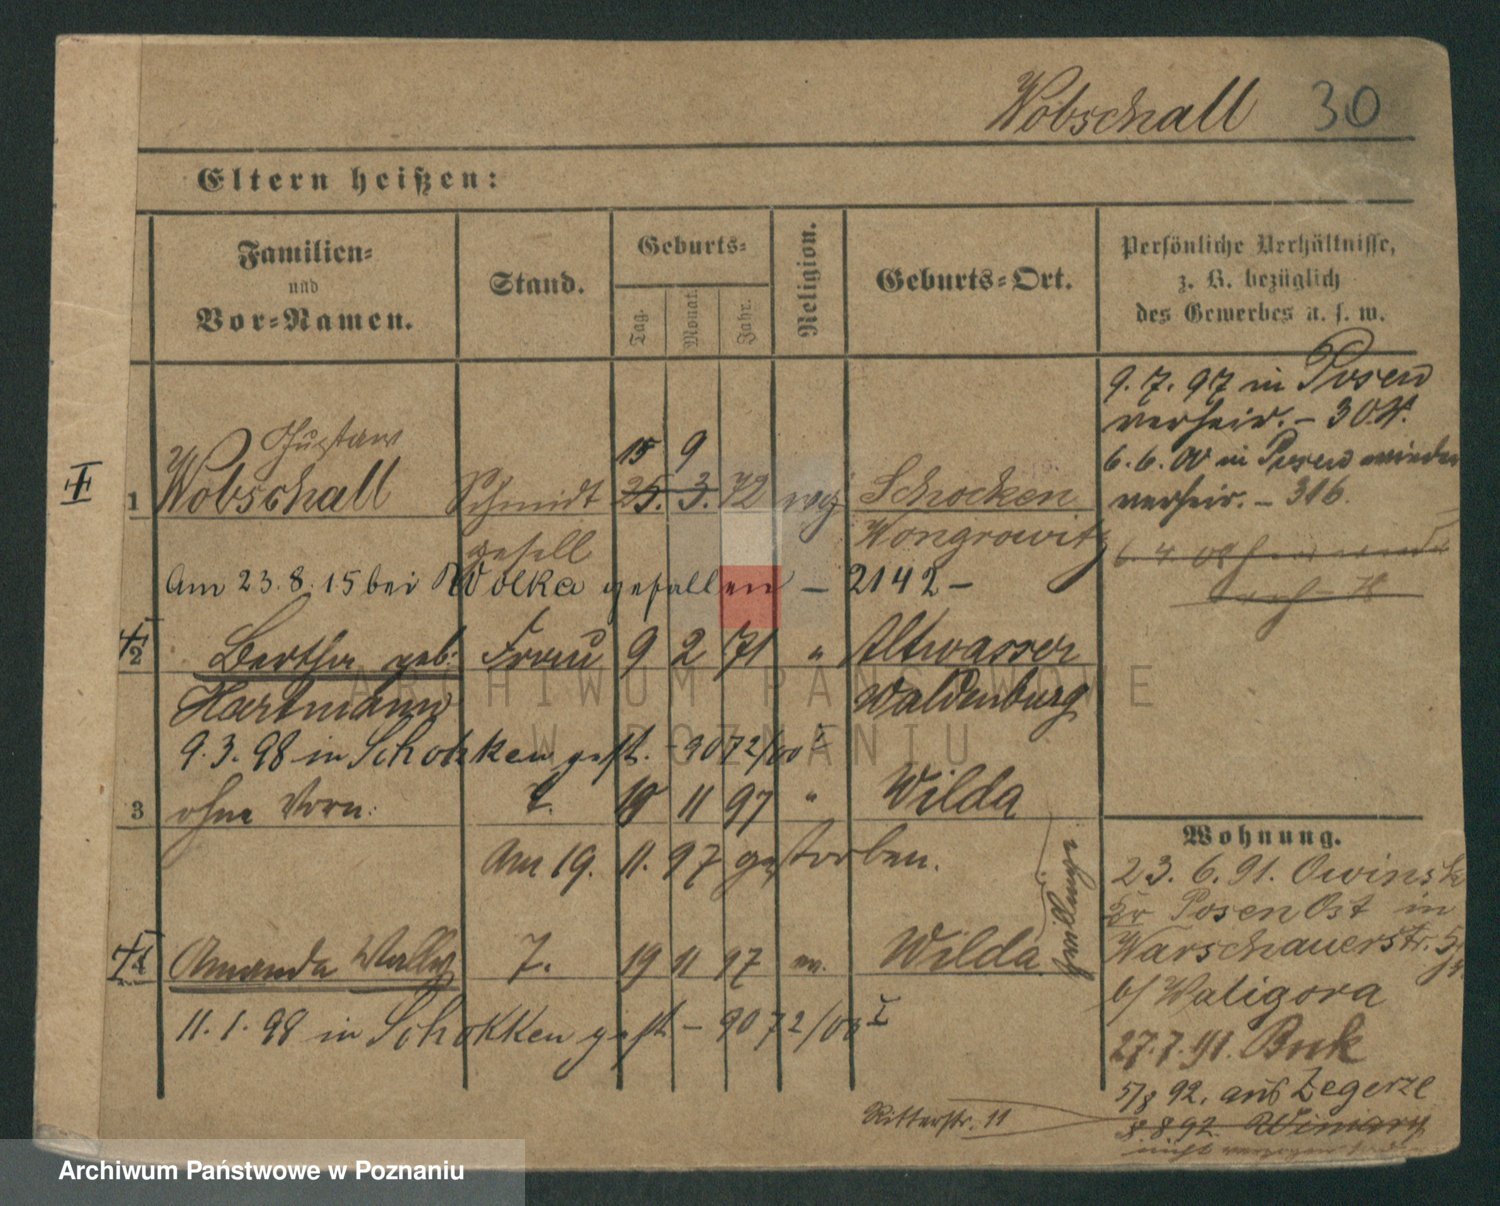 Wobschall 30
Eltern heißen:
Familien-
und
Vor-Namen.
Stand.
Geburts-
Tag.
Monat.
Jahr.
Religion.
Geburts-Ort.
Persönliche Verhältnisse,
z. B. bezüglich
des Gewerbes u. s. w.
9. 7. 97 in Posen
verheir. – 30
6. 6. 00 in Posen wieder
verheir. – 316.
Gustav
15 9
1 Wobschall Schmidt 25. 3. 72 Schocken
gesell Wongrowitz
Am 23. 8. 15 bei Wolka gefallen – 2142 –
2 Bertha geb. Frau 9 2 71 " Altwasser
Hartmann Waldenburg
9. 3. 98 in Schokken gest. – 9072/00 I
3 ohne Vorn. T. 19 11 97 " Wilda
Am 19. 11. 97 gestorben.
4 Amanda Wally T. 19 11 97 ev. Wilda
Zwillinge
11. 1. 98 in Schokken gest – 9072/00 I
Wohnung.
23. 6. 91. Owinsk
Kr Posen Ost in
Warschauerstr. 5
b/ Waligora
27. 7. 91. Buk
5/8 92. aus Zegerze
8 8 92 Winiary
Ritterstr. 11
nicht verzogen
ARCHIWUM PAŃSTWOWE
W POZNANIU
Archiwum Państwowe w Poznaniu